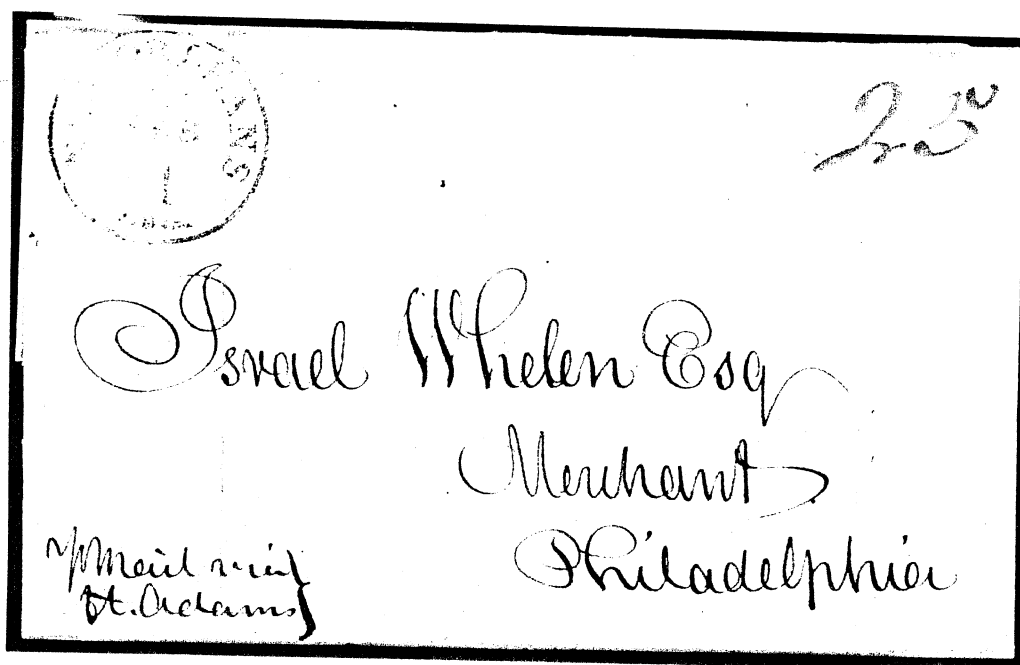 Israel Whelen Esq
Merchant
Philadelphia
Mail via
Ft. Adams